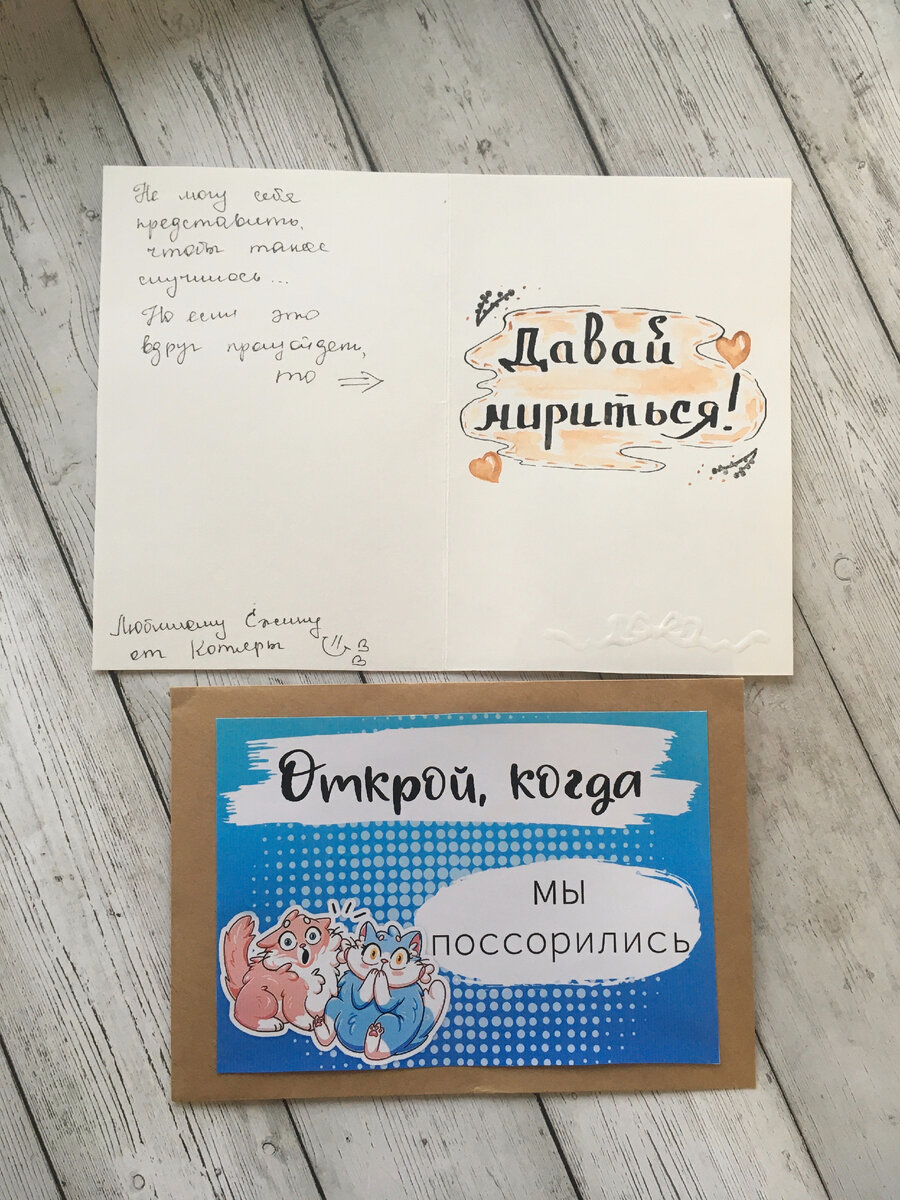 Не могу себя
представить,
чтобы такое
случилось...
Но если это
вдруг произойдет,
то
Давай
мириться!
Любимому Ёжику
от Котеры
Открой, когда
мы
поссорились